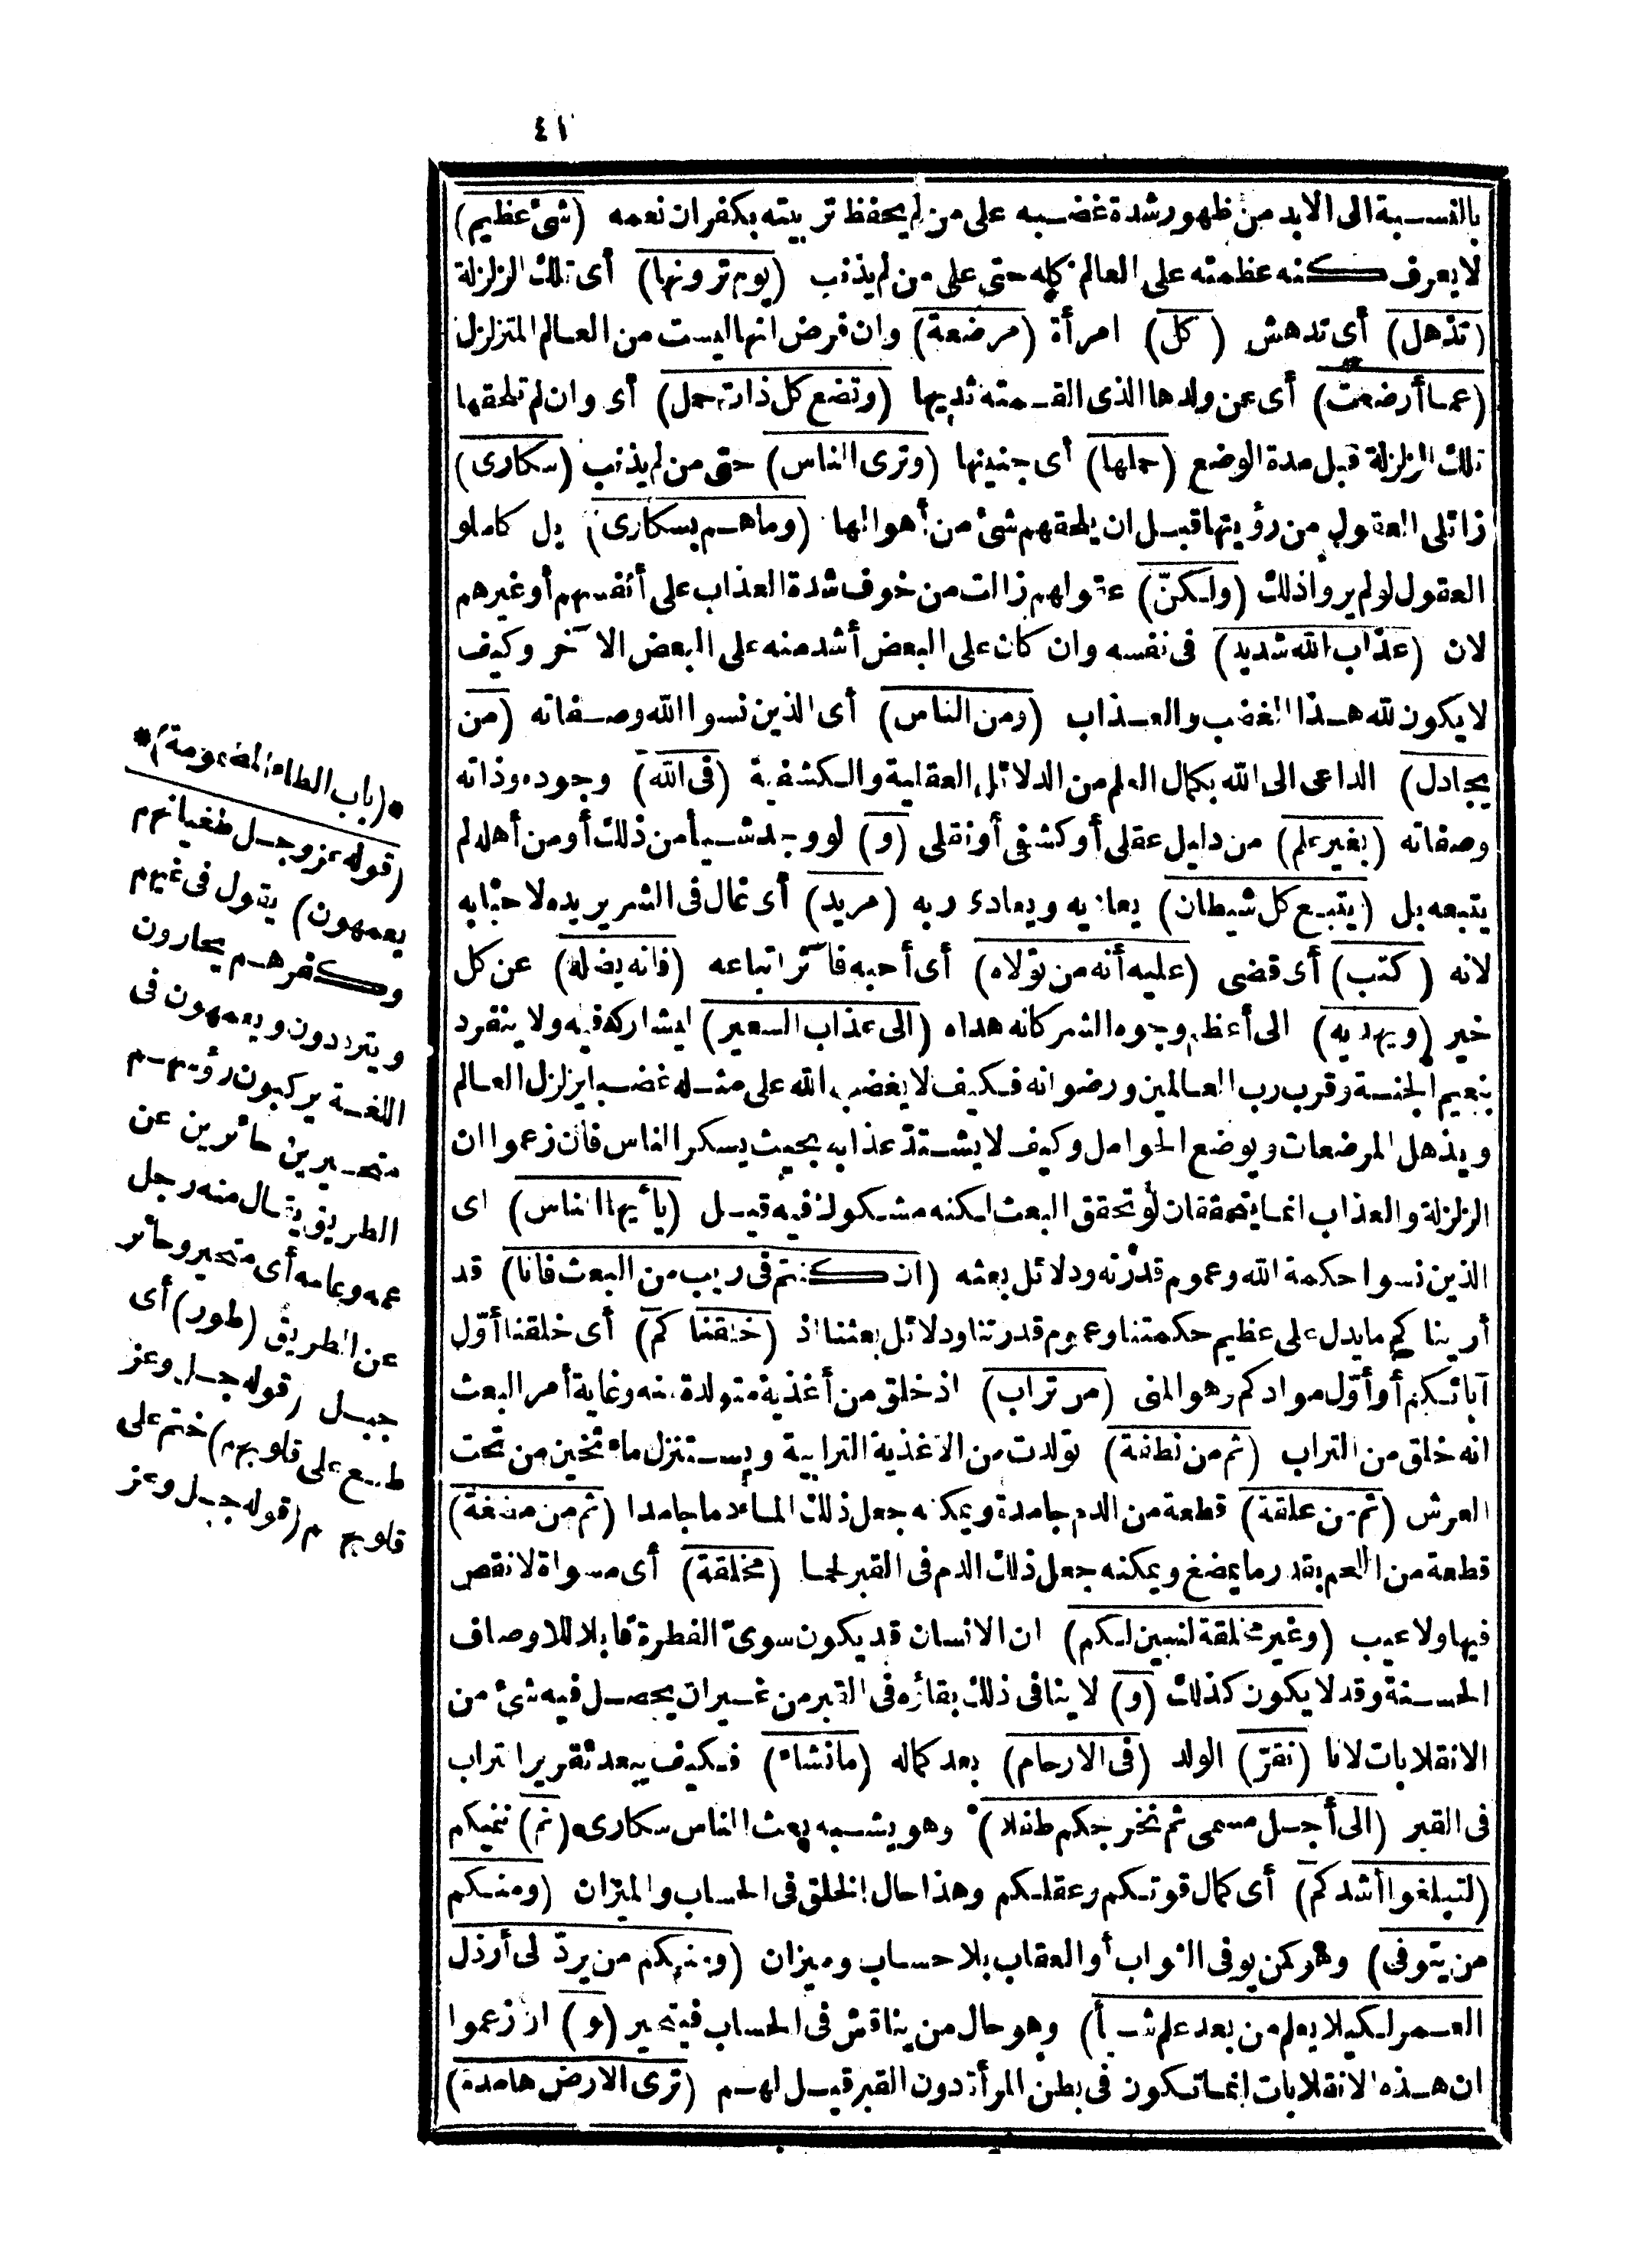 ٤١
بالنسبة الى الابد من ظهور شدة غضبه على من لم يحفظ تربيته بكفران نعمه (شئ عظيم)
لا يعرف كنه عظمته على العالم كله حتى على من لم يذنب (يوم ترونها) أى تلك الزلزلة
(تذهل) أى تدهش (كل) امرأة (مرضعة) وان فرض انها ليست من العالم المتزلزل
(عما أرضعت) أى عن ولدها الذى القمته ثديها (وتضع كل ذات حمل) أى وان لم تلحقها
تلك الزلزلة قبل مدة الوضع (حملها) أى جنينها (وترى الناس) حتى من لم يذنب (سكارى)
زائلى العقول من رؤيتها قبل ان يلحقهم شئ من أهوالها (وما هم بسكارى) بل كاملو
العقول لو لم يروا ذلك (ولكنّ) عقولهم زالت من خوف شدة العذاب على أنفسهم أو غيرهم
لان (عذاب الله شديد) فى نفسه وان كان على البعض أشد منه على البعض الآخر وكيف
لا يكون لله هذا الغضب والعذاب (ومن الناس) أى الذين نسوا الله وصفاته (من
يجادل) الداعى الى الله بكمال العلم من الدلائل العقلية والكشفية (فى الله) وجوده وذاته
وصفاته (بغير علم) من دليل عقلى أو كشفى أو نقلى (و) لو وجد شيأ من ذلك أو من أهله لم
يتبعه بل (يتبع كل شيطان) يعانيه ويعادى ربه (مريد) أى غال فى الشر يريده لاحبابه
لانه (كتب) أى قضى (عليه أنه من تولاه) أى أحبه فآثر اتباعه (فانه يضله) عن كل
خير (ويهديه) الى أعظم وجوه الشر كانه هداه (الى عذاب السعير) ليشاركه فيه ولا ينفرد
بنعيم الجنة وقرب رب العالمين ورضوانه فكيف لا يغضب الله على مثله غضبا يزلزل العالم
ويذهل المرضعات ويوضع الحوامل وكيف لا يشتدّ عذابه بحيث يسكر الناس فان زعموا ان
الزلزلة والعذاب انما يتحققان لو تحقق البعث لكنه مشكوك فيه قيل (يا أيها الناس) اى
الذين نسوا حكمة الله وعموم قدرته ودلائل بعثه (ان كنتم فى ريب من البعث فانا) قد
أريناكم ما يدل على عظيم حكمتنا وعموم قدرتنا ودلائل بعثنا اذ (خلقناكم) أى خلقنا أوّل
آبائكم أو أوّل موادكم وهو المنى (من تراب) اذ خلق من أغذية متولدة منه وغاية أمر البعث
انه خلق من التراب (ثم من نطفة) تولدت من الاغذية الترابية ويستنزل ماء ثخين من تحت
العرش (ثم من علقة) قطعة من الدم جامدة ويمكنه جعل ذلك الماء دما جامدا (ثم من مضغة)
قطعة من اللحم بقدر ما يمضغ ويمكنه جعل ذلك الدم فى القبر لحما (مخلقة) أى مسواة لا نقص
فيها ولا عيب (وغير مخلقة لنبين لكم) ان الانسان قد يكون سوىّ الفطرة قابلا للاوصاف
الحسنة وقد لا يكون كذلك (و) لا ينافى ذلك بقاؤه فى القبر من غير ان يحصل فيه شئ من
الانقلابات لانا (نقرّ) الولد (فى الارحام) بعد كماله (ما نشاء) فكيف يبعد تقريرا تراب
فى القبر (الى أجل مسمى ثم نخرجكم طفلا) وهو يشبه بعث الناس سكارى (ثم) ننميكم
(لتبلغوا أشدكم) أى كمال قوتكم وعقلكم وهذا حال الخلق فى الحساب والميزان (ومنكم
من يتوفى) وهو كمن يوفى الثواب أو العقاب بلا حساب وميزان (ومنكم من يردّ الى أرذل
العمر لكيلا يعلم من بعد علم شيأ) وهو حال من يناقش فى الحساب فيتحير (و) ان زعموا
ان هذه الانقلابات انما تكون فى بطن المرأة دون القبر قيل لهم (ترى الارض هامدة)
*(باب الطاء المضمومة)*
(قوله عز وجل طغيانهم
يعمهون) يقول فى غيهم
وكفرهم يحارون
ويترددون ويعمهون فى
اللغة يركبون رؤسهم
متحيرين حائرين عن
الطريق يقال منه رجل
عمه وعامه أى متحير وحائر
عن الطريق (طور) أى
جبل (قوله جل وعز
طبع على قلوبهم) ختم على
قلوبهم (قوله جل وعز